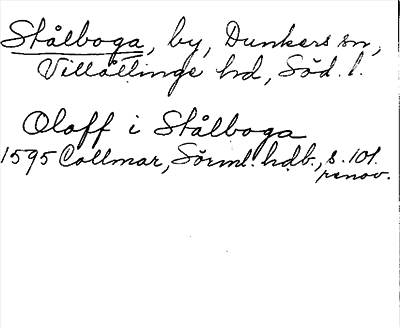 Stålboga, by, Dunkers sn,
Villåttinge hd, Söd. l.
Oloff i Stålboga
1595 Collmar, Sörml. hdb., s. 101.
renov.